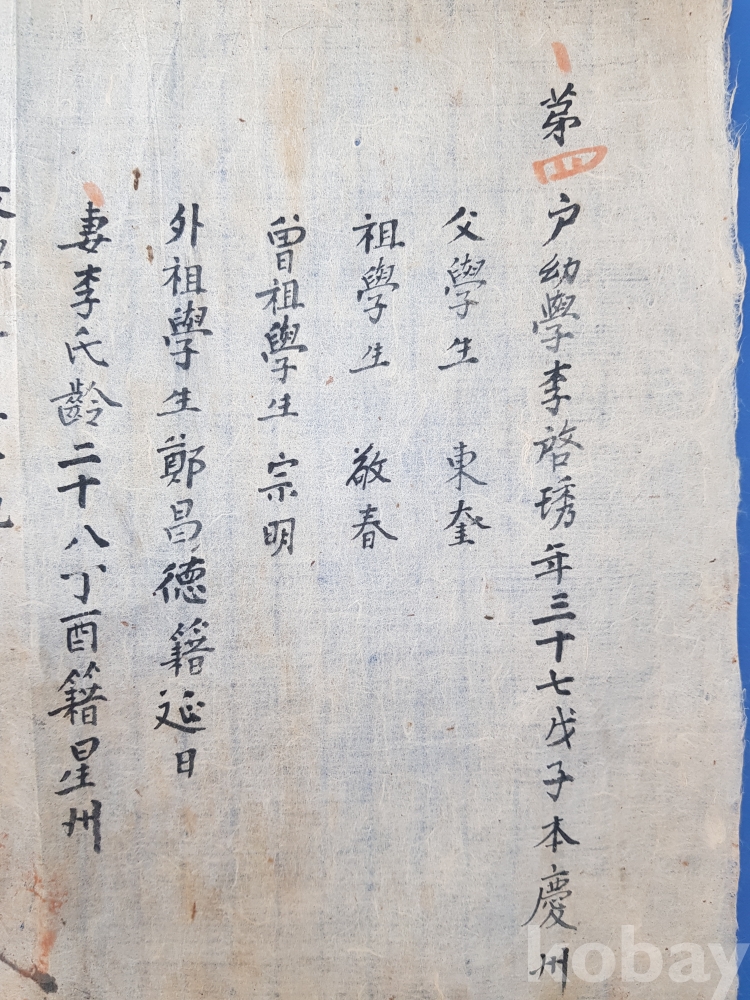 第四户幼學李啓琇年三十七戊子本慶州
父學生 東奎
祖學生 敬春
曾祖學生 宗明
外祖學生鄭昌德籍延日
妻李氏齡二十八丁酉籍星州
kobay